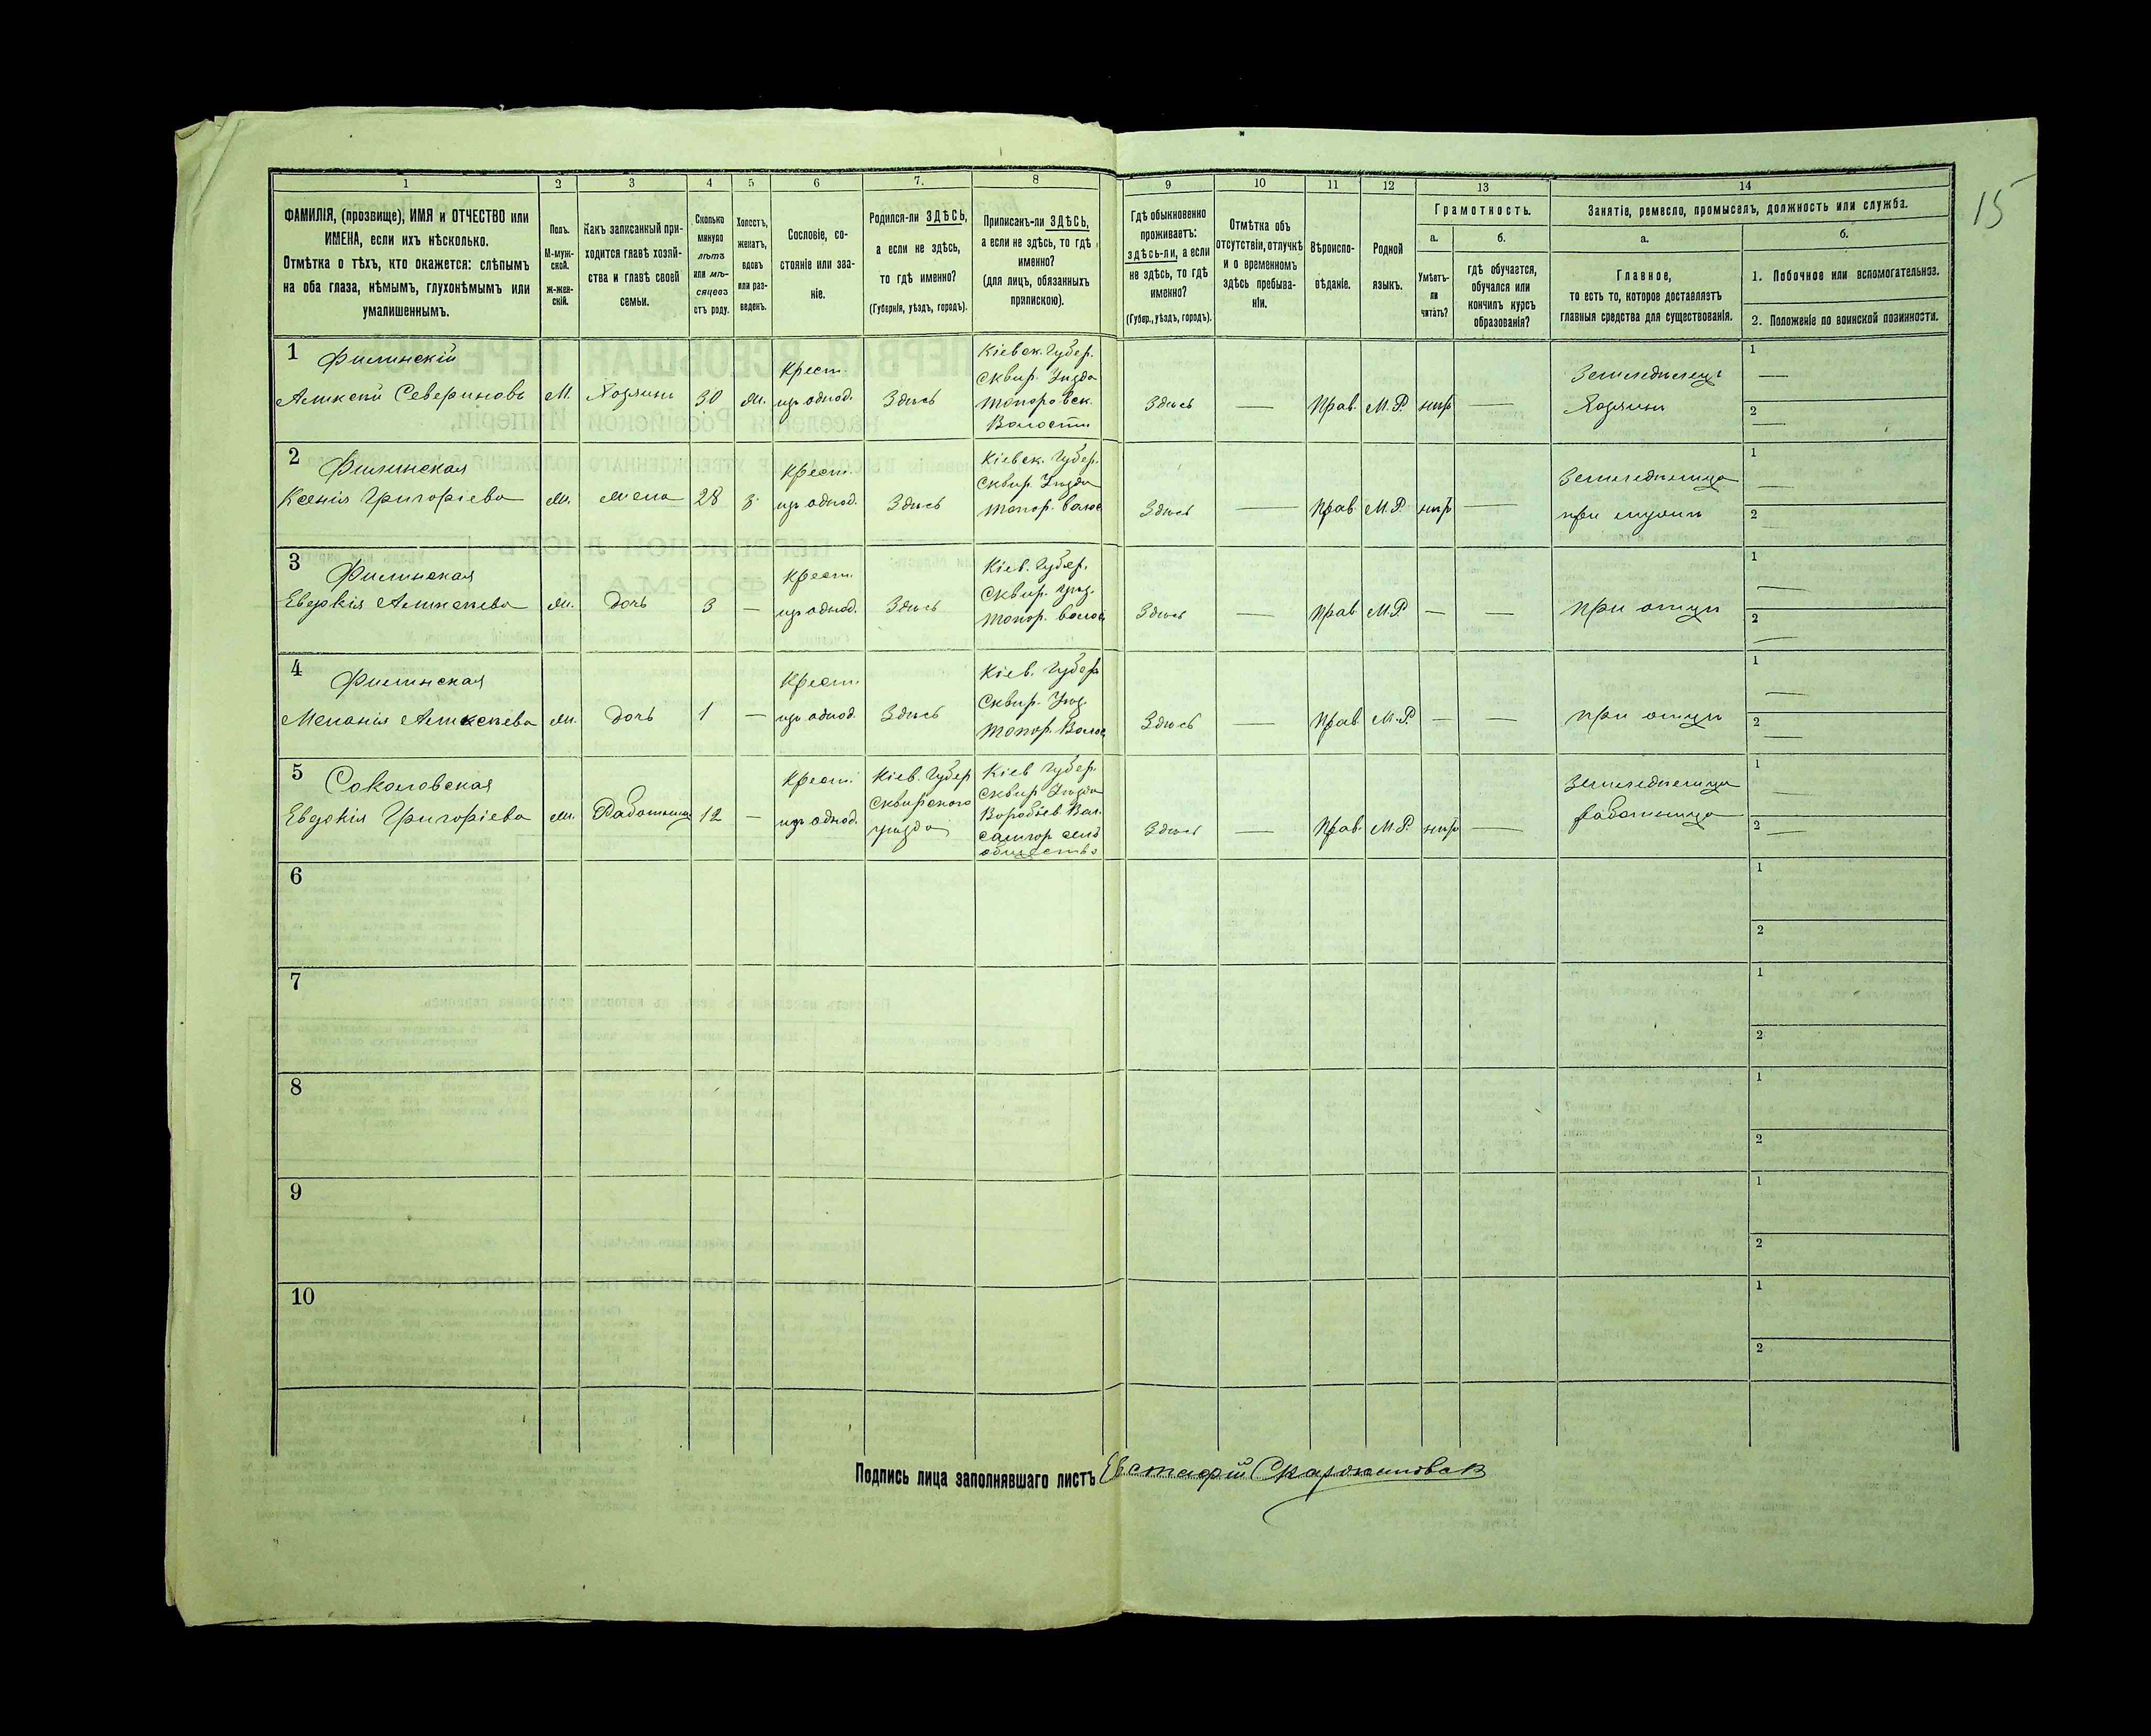 15
1 2 3 4 5 6 7. 8 9 10 11 12 13 14
ФАМИЛІЯ, (прозвище), ИМЯ и ОТЧЕСТВО или
ИМЕНА, если ихъ нѣсколько.
Отмѣтка о тѣхъ, кто окажется: слѣпымъ
на оба глаза, нѣмымъ, глухонѣмымъ или
умалишеннымъ.
Полъ.
М-муж-
ской.
ж-жен-
скій.
Какъ записанный при-
ходится главѣ хозяй-
ства и главѣ своей
семьи.
Сколько
минуло
лѣтъ
или мѣ-
сяцевъ
отъ роду.
Холостъ,
женатъ,
вдовъ
или раз-
веденъ.
Сословіе, со-
стояніе или зва-
ніе.
Родился-ли ЗДѢСЬ,
а если не здѣсь,
то гдѣ именно?
(Губернія, уѣздъ, городъ).
Приписанъ-ли ЗДѢСЬ,
а если не здѣсь, то гдѣ
именно?
(для лицъ, обязанныхъ
припискою).
Гдѣ обыкновенно
проживаетъ:
здѣсь-ли, а если
не здѣсь, то гдѣ
именно?
(Губер., уѣздъ, городъ).
Отмѣтка объ
отсутствіи, отлучкѣ
и о временномъ
здѣсь пребыва-
ніи.
Вѣроиспо-
вѣданіе.
Родной
языкъ.
Грамотность.
а.
Умѣетъ-
ли
читать?
б.
гдѣ обучается,
обучался или
кончилъ курсъ
образованія?
Занятіе, ремесло, промыселъ, должность или служба.
а.
Главное,
то есть то, которое доставляетъ
главныя средства для существованія.
б.
1. Побочное или вспомогательное.
2. Положеніе по воинской повинности.
1 Филинскій
Алексѣй Севериновъ
М.
Хозяинъ
30
Крест.
изъ однод.
Здѣсь
Кіевск. Губер.
Сквир. Уѣзда
Топоровск.
Волости
Здѣсь
—
Прав.
М.Р.
нѣтъ
—
Хозяинъ
1 —
2 —
2 Филинская
Ксенія Григоріева
жена
28
з.
Крест.
изъ однод.
Здѣсь
Кіевск. Губер.
Сквир. Уѣзда
Топор. Волос
Здѣсь
—
Прав.
М.Р.
нѣтъ
—
при мужѣ
1 —
2 —
3 Филинская
Евдокія Алексѣева
Дочь
3
—
Крест.
изъ однод.
Здѣсь
Кіев. Губер.
Сквир. уѣзд.
Топор. волос
Здѣсь
—
Прав
М.Р.
—
—
при отцѣ
1 —
2 —
4 Филинская
Меланія Алексѣева
Дочь
1
—
Крест.
изъ однод.
Здѣсь
Кіев. Губер
Сквир. Уѣзд.
Топор. Волос
Здѣсь
—
Прав.
М.Р.
—
—
при отцѣ
1 —
2 —
5 Соколовская
Евдокія Григоріева
Работница
12
—
Крест.
изъ однод.
Кіев. Губер
Сквирскаго
уѣзда
Кіев Губер.
Сквир Уѣзда
Воробіев Вол.
общества
Здѣсь
—
Прав.
М.Р.
нѣтъ
—
работница
1 —
2 —
6
1
2
7
1
2
8
1
2
9
1
2
10
1
2
Подпись лица заполнявшаго листъ Евстафій